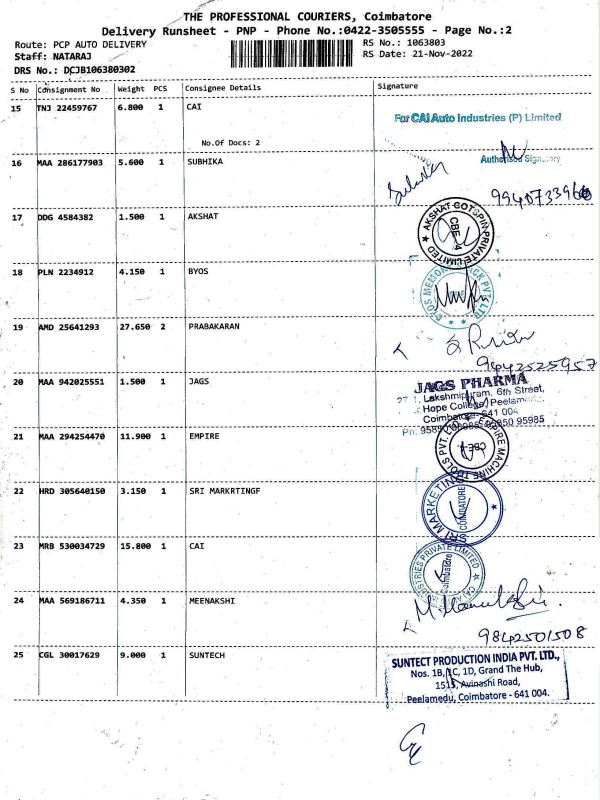 THE PROFESSIONAL COURIERS, Coimbatore
Delivery Runsheet - PNP - Phone No.:0422-3505555 - Page No.:2
Route: PCP AUTO DELIVERY
RS No.: 1063803
Staff: NATARAJ
RS Date: 21-Nov-2022
DRS No.: DCJB106380302
S No Consignment No Weight PCS Consignee Details Signature
15 TNJ 22459767 6.800 1 CAI
For CAI Auto Industries (P) Limited
No.Of Docs: 2
Authorised Signatory
16 MAA 286177903 5.600 1 SUBHIKA
17 DDG 4584382 1.500 1 AKSHAT
AKSHAT COTSPIN PRIVATE LIMITED
CBE - 4
18 PLN 2234912 4.150 1 BYOS
19 AMD 25641293 27.650 2 PRABAKARAN
9442525957
20 MAA 942025551 1.500 1 JAGS
JAGS PHARMA
Lakshmipuram, 6th Street,
Hope College, Peelamedu
Coimbatore - 641 004
21 MAA 294254470 11.900 1 EMPIRE
EMPIRE MACHINE TOOLS PVT. LTD.
CBE
22 HRD 305640150 3.150 1 SRI MARKRTINGF
SRI MARKETING
COIMBATORE
23 MRB 530034729 15.800 1 CAI
INDUSTRIES PRIVATE LIMITED
Coimbatore
24 MAA 569186711 4.350 1 MEENAKSHI
9842501508
25 CGL 30017629 9.000 1 SUNTECH
SUNTECT PRODUCTION INDIA PVT. LTD.,
Nos. 1B, 1C, 1D, Grand The Hub,
1515, Avinashi Road,
Peelamedu, Coimbatore - 641 004.